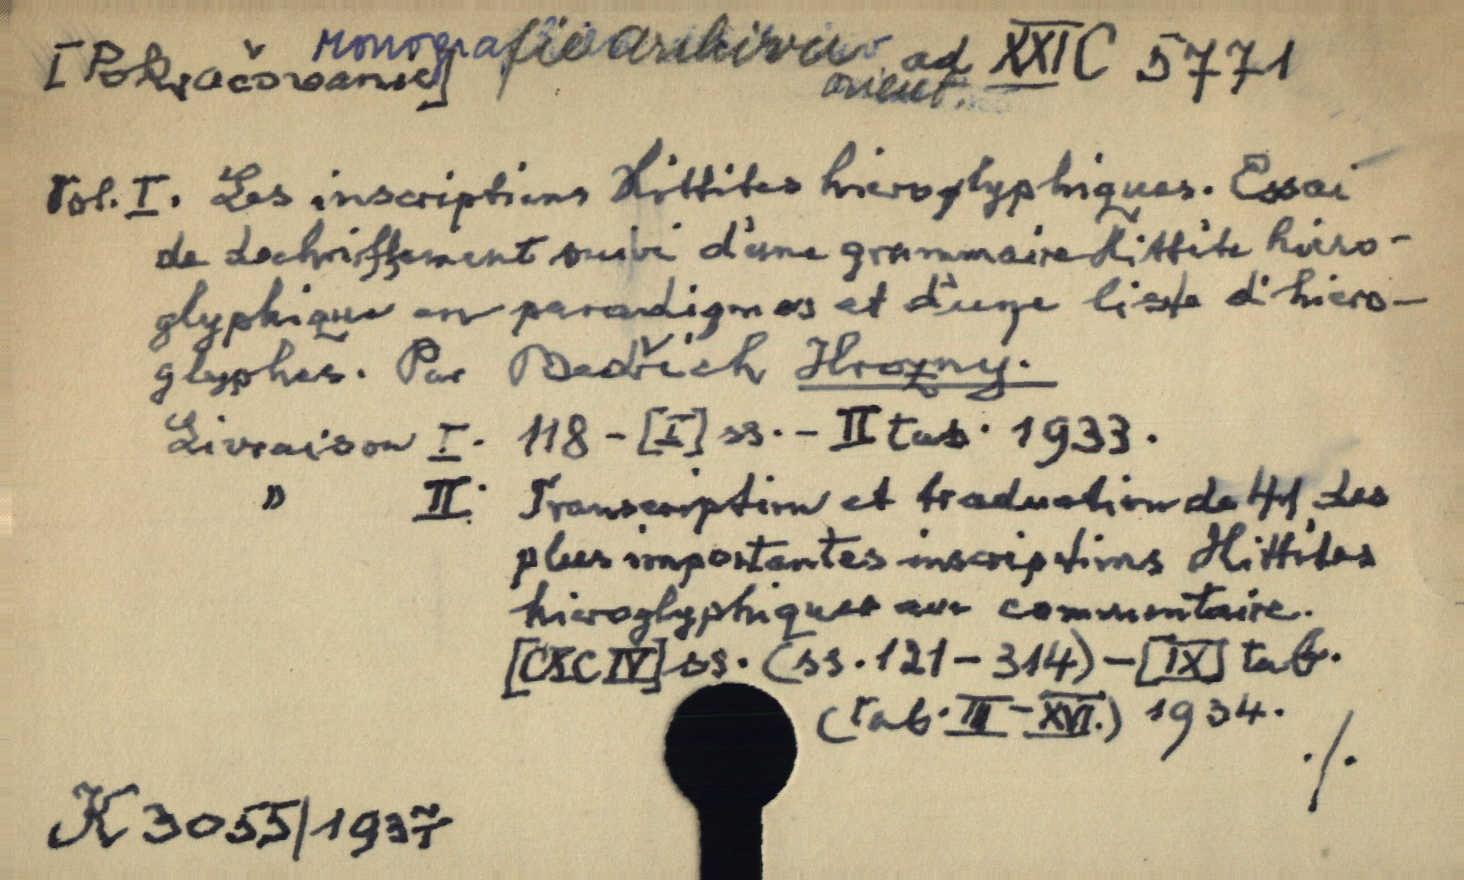 Monografie archivu orient. ad XXI C 5771
[Pokračovanie]
Vol. I. Les inscriptions Hittites hieroglyphiques. Essai
de dechriffement suivi d'une grammaire Hittite hiero-
glyphique en paradigmes et d'une liste d'hiero-
glyphes. Par Bedřich Hrozny.
Livraison I. 118 - [I] ss. - II tab. 1933.
" II. Transcription et traduction de 41 des
plus importantes inscriptions Hittites
hieroglyphiques avec commentaire.
[CXCIV] ss. (ss. 121 - 314) - [IX] tab.
(tab. III - XVI.) 1934.
./.
K 3055/1937